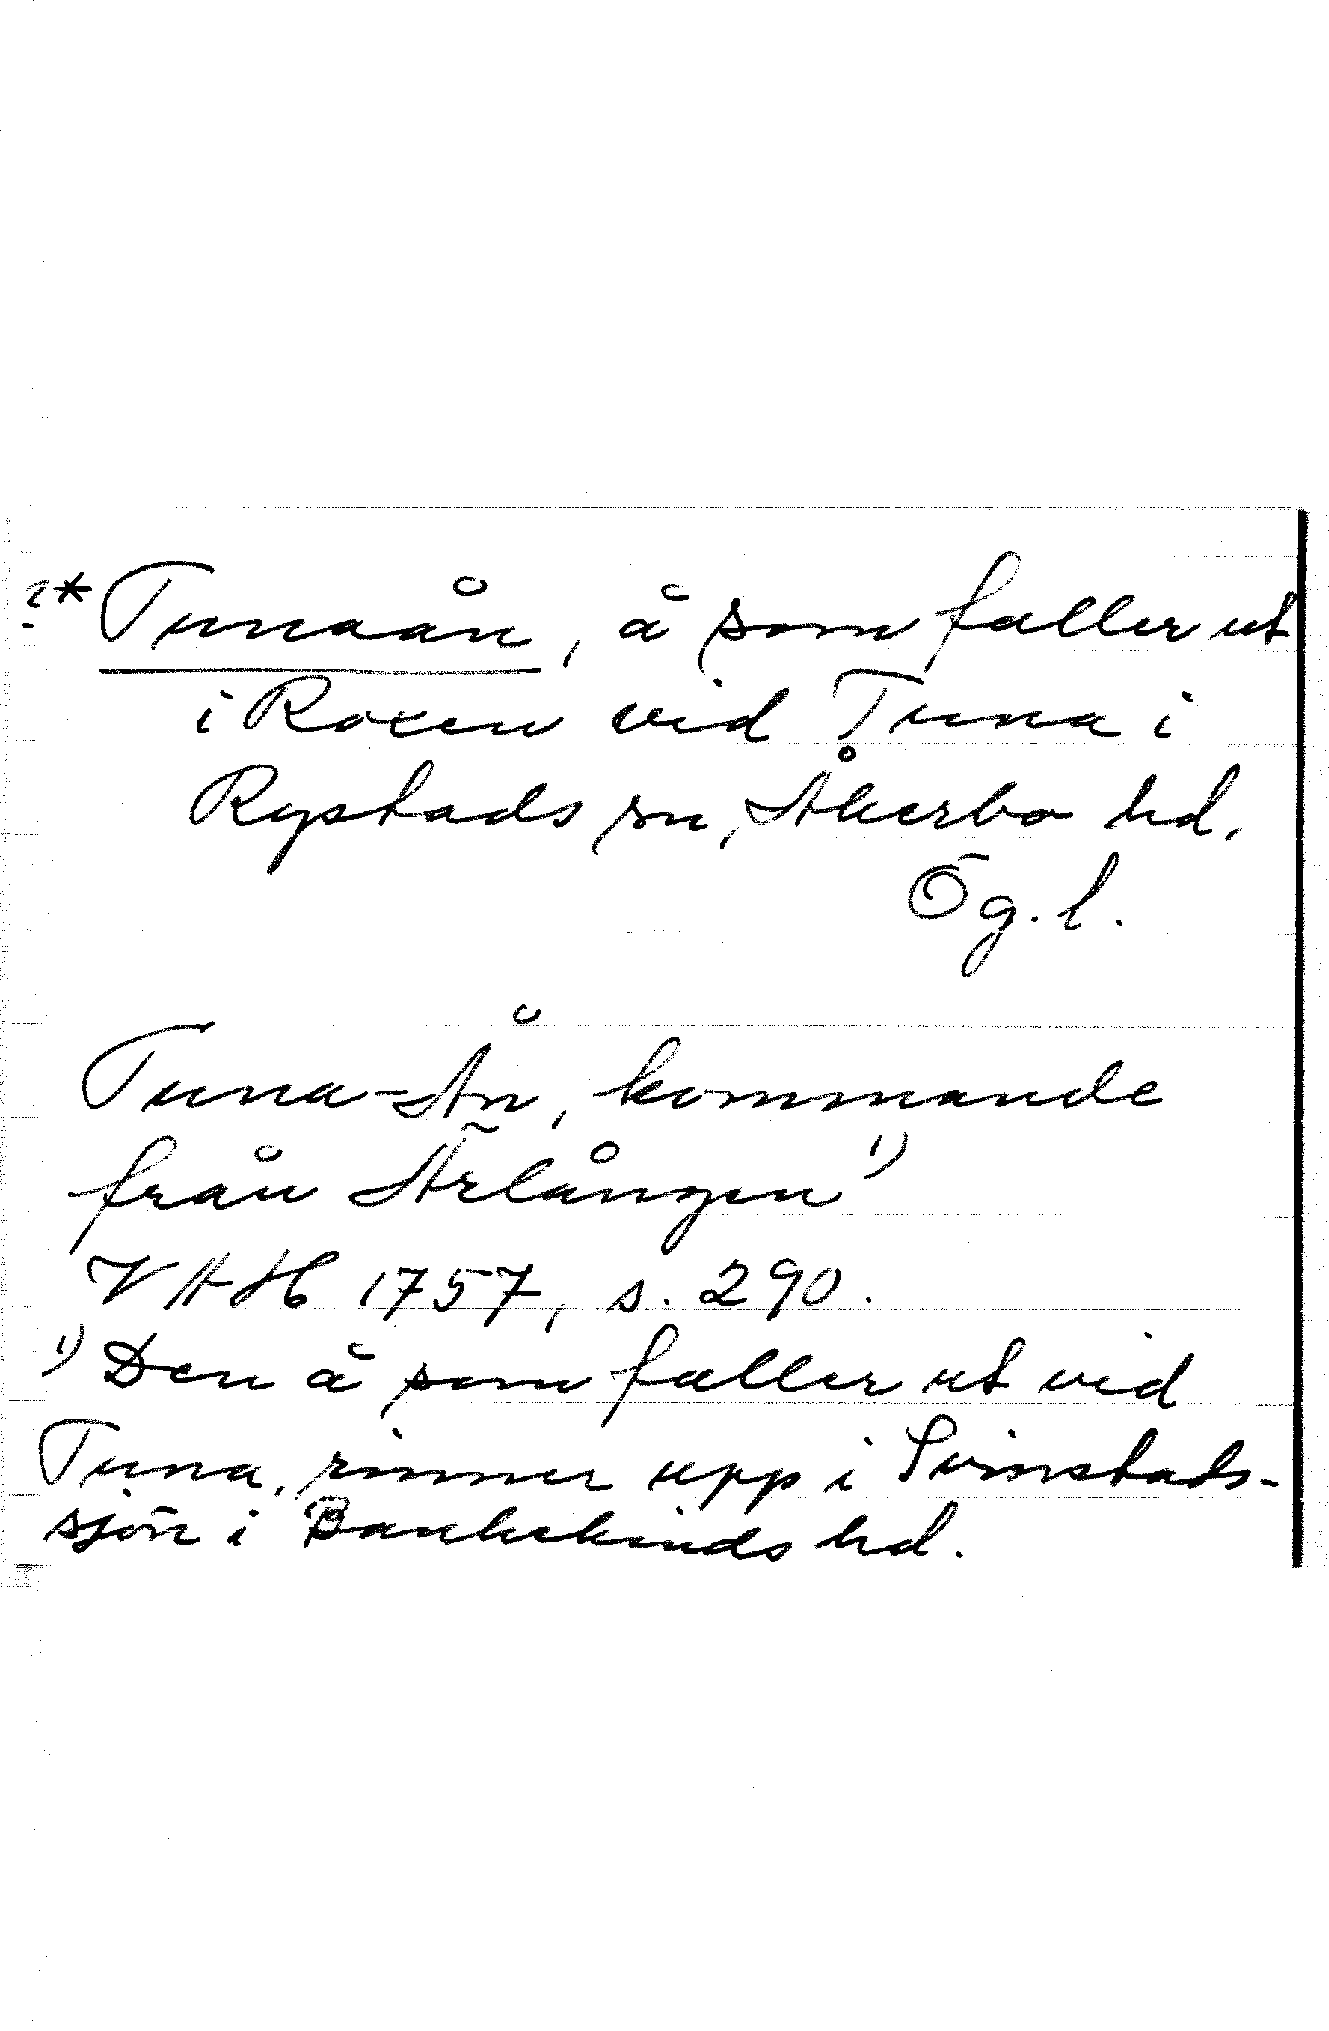 ?* Tunaån, å som faller ut
i Roxen vid Tuna i
Rystads sn, Åkerbo hd.
Ög. l.
Tuna-Ån, kommande
från Ärlången 1)
VAH 1757, s. 290.
1) Den å som faller ut vid
Tuna, rinner upp i Svinstads-
sjön i Bankekinds hd.